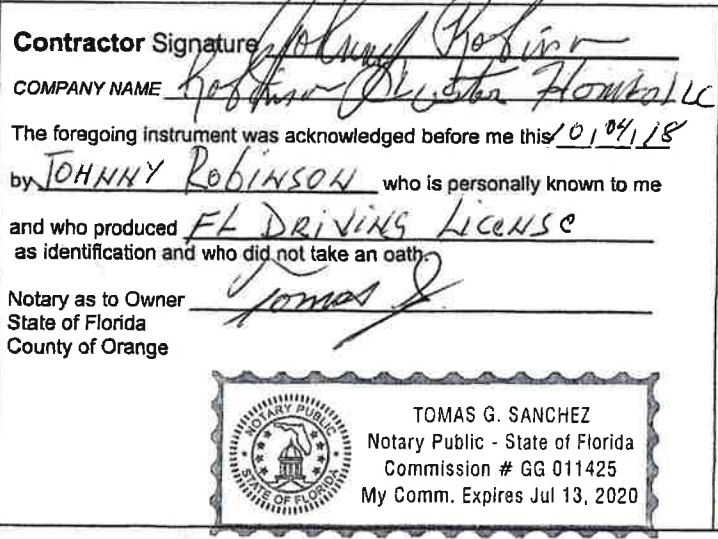 Contractor Signature Johnny Robinson
COMPANY NAME Robinson Custom Homes LLC
The foregoing instrument was acknowledged before me this 10/04/18
by JOHNNY ROBINSON who is personally known to me
and who produced FL DRIVING LICENSE
as identification and who did not take an oath.
Notary as to Owner Tomas S.
State of Florida
County of Orange
NOTARY PUBLIC
STATE OF FLORIDA
TOMAS G. SANCHEZ
Notary Public - State of Florida
Commission # GG 011425
My Comm. Expires Jul 13, 2020